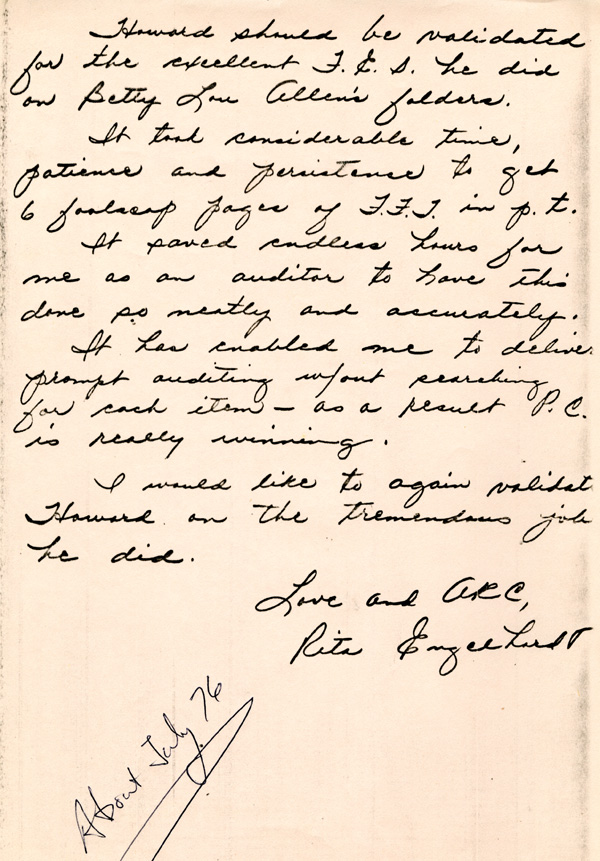 Howard should be validated
for the excellent F.E.S. he did
on Betty Lou Allen's folders.
It took considerable time,
patience and persistence to get
6 foolscap pages of F.F.T. in p.t.
It saved endless hours for
me as an auditor to have this
done so neatly and accurately.
It has enabled me to deliver
prompt auditing w/out searching
for each item – as a result P.C.
is really winning.
I would like to again validat
Howard on the tremendous job
he did.
Love and ARC,
Rita Engelhardt
About July 76